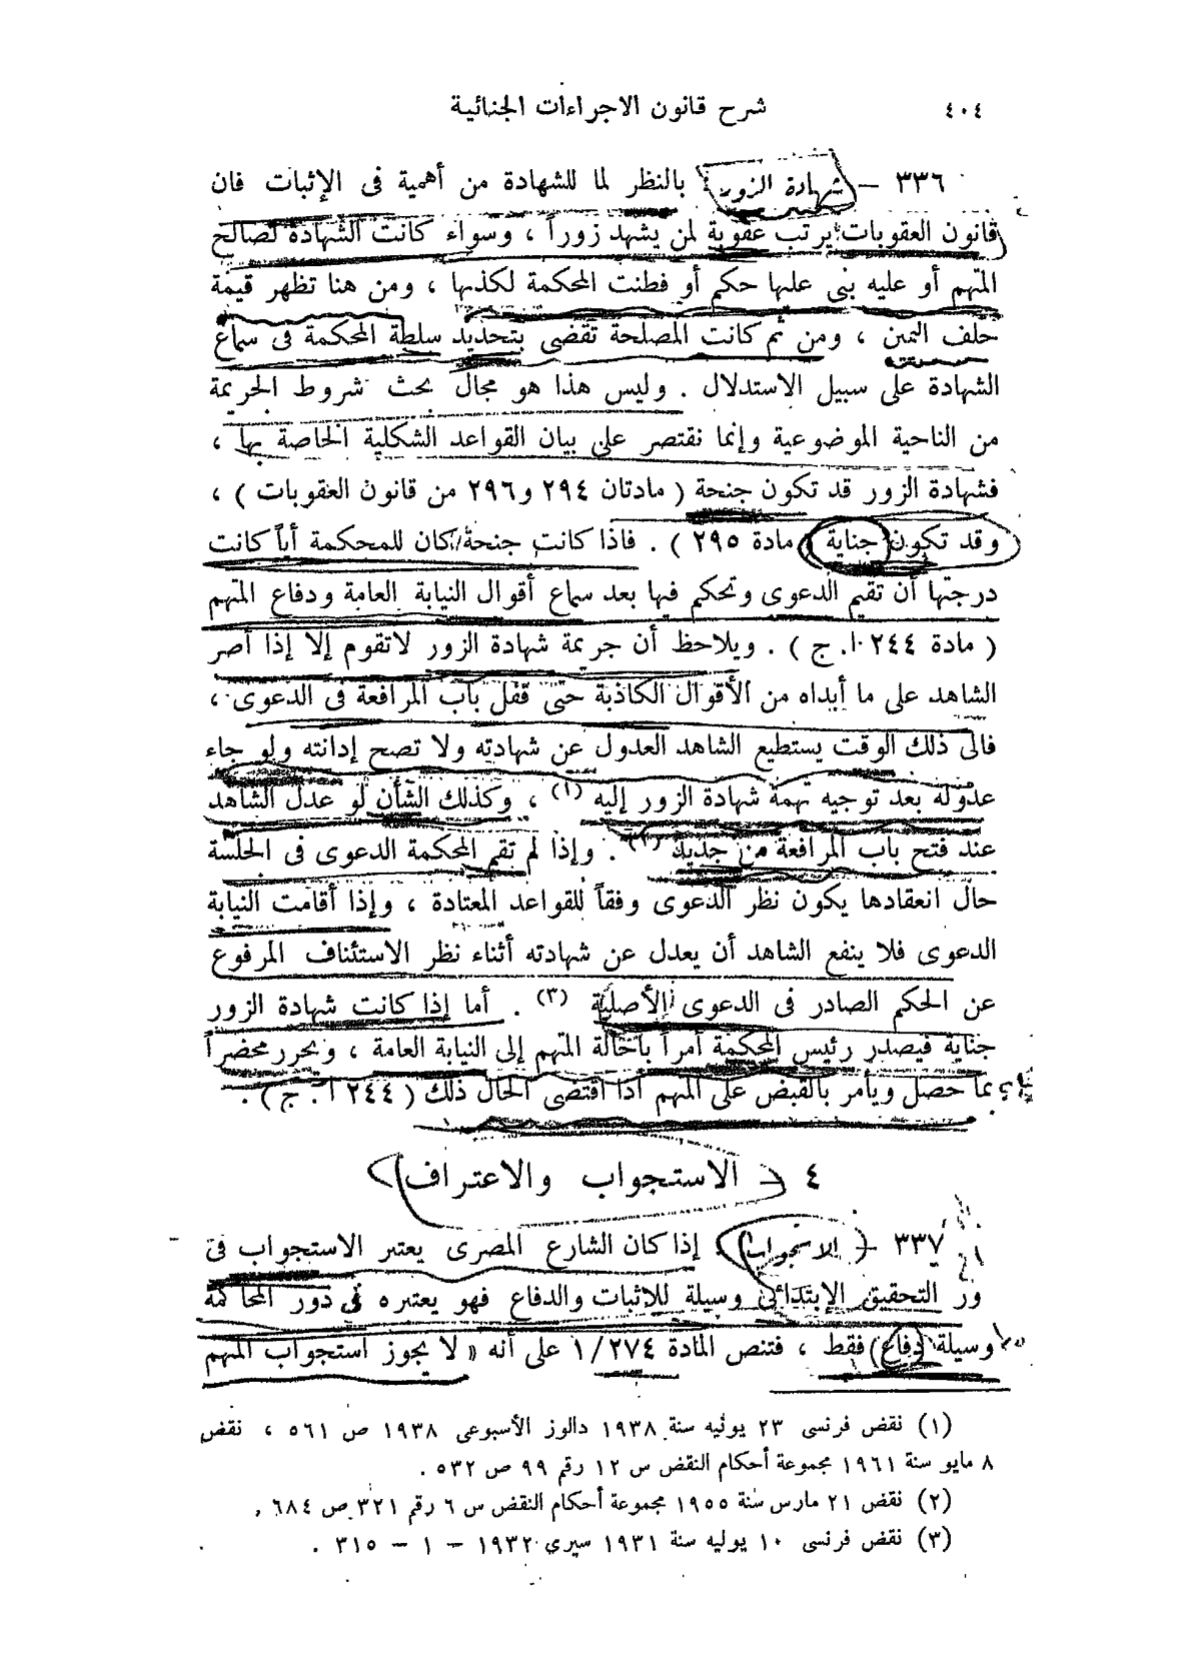 ٤٠٤
شرح قانون الاجراءات الجنائية
٣٣٦ — شهادة الزور : بالنظر لما للشهادة من أهمية فى الإثبات فان
قانون العقوبات يرتب عقوبة لمن يشهد زوراً ، وسواء كانت الشهادة لصالح
المتهم أو عليه بنى عليها حكم أو فطنت المحكمة لكذبها ، ومن هنا تظهر قيمة
حلف اليمين ، ومن ثم كانت المصلحة تقضى بتحديد سلطة المحكمة فى سماع
الشهادة على سبيل الاستدلال . وليس هذا هو مجال بحث شروط الجريمة
من الناحية الموضوعية وإنما نقتصر على بيان القواعد الشكلية الخاصة بها ،
فشهادة الزور قد تكون جنحة ( مادتان ٢٩٤ و٢٩٦ من قانون العقوبات ) ،
وقد تكون جناية ( مادة ٢٩٥ ) . فاذا كانت جنحة كان للمحكمة أياً كانت
درجتها أن تقيم الدعوى وتحكم فيها بعد سماع أقوال النيابة العامة ودفاع المتهم
( مادة ٢٤٤ ا. ج ) . ويلاحظ أن جريمة شهادة الزور لاتقوم إلا إذا أصر
الشاهد على ما أبداه من الأقوال الكاذبة حتى قفل باب المرافعة فى الدعوى ،
فالى ذلك الوقت يستطيع الشاهد العدول عن شهادته ولا تصح إدانته ولو جاء
عدوله بعد توجيه تهمة شهادة الزور إليه (١) ، وكذلك الشأن لو عدل الشاهد
عند فتح باب المرافعة من جديد (٢) . وإذا لم تقم المحكمة الدعوى فى الجلسة
حال انعقادها يكون نظر الدعوى وفقاً للقواعد المعتادة ، وإذا أقامت النيابة
الدعوى فلا ينفع الشاهد أن يعدل عن شهادته أثناء نظر الاستئناف المرفوع
عن الحكم الصادر فى الدعوى الأصلية (٣) . أما إذا كانت شهادة الزور
جناية فيصدر رئيس المحكمة أمراً باحالة المتهم إلى النيابة العامة ، ويحرر محضراً
بما حصل ويأمر بالقبض على المتهم اذا اقتضى الحال ذلك ( ٢٤٤ ا . ج ) .
٤ — الاستجواب والاعتراف
٣٣٧ — الاستجواب : إذا كان الشارع المصرى يعتبر الاستجواب فى
دور التحقيق الإبتدائى وسيلة للاثبات والدفاع فهو يعتبره فى دور المحاكمة
وسيلة دفاع فقط ، فتنص المادة ١/٢٧٤ على أنه « لا يجوز استجواب المتهم
(١) نقض فرنسى ٢٣ يوليه سنة ١٩٣٨ دالوز الأسبوعى ١٩٣٨ ص ٥٦١ ، نقض
٨ مايو سنة ١٩٦١ مجموعة أحكام النقض س ١٢ رقم ٩٩ ص ٥٣٢ .
(٢) نقض ٢١ مارس سنة ١٩٥٥ مجموعة أحكام النقض س ٦ رقم ٣٢١ ص ٦٨٤ .
(٣) نقض فرنسى ١٠ يوليه سنة ١٩٣١ سيرى ١٩٣٢ — ١ — ٣١٥ .